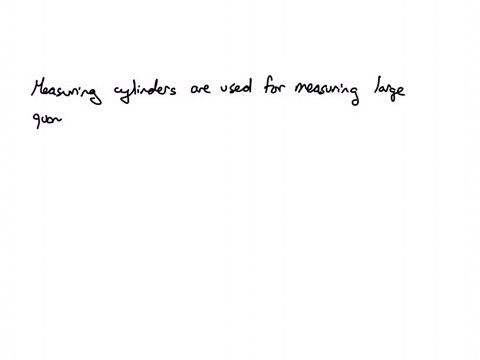 Measuring cylinders are used for measuring large
quan